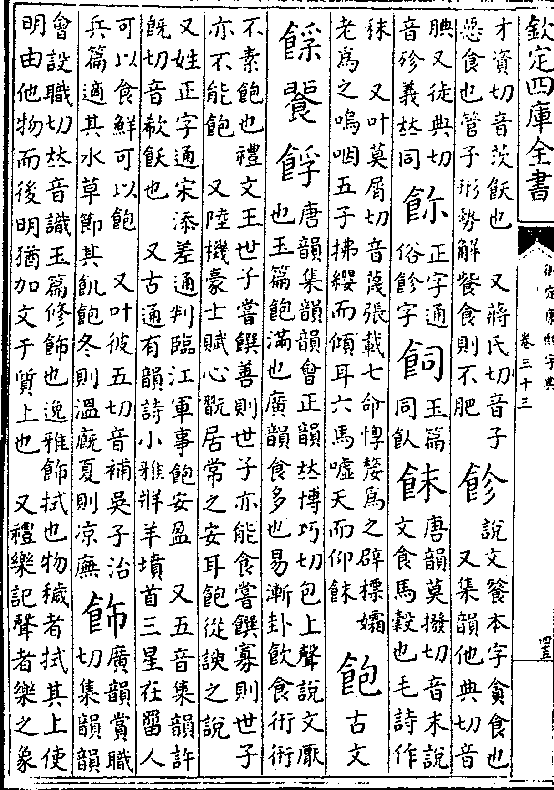 欽定四庫全書
御定康熙字典
卷三十三
才資切音茨飫也　又蔣氏切音子
惡食也管子形勢解餐食則不肥
飻
說文餮本字貪食也
又集韻他典切音
腆又徒典切
音殄義𠀤同
正字通
俗飻字
飼
玉篇
同飤
䬴
唐韻莫撥切音末說
文食馬穀也毛詩作
秣　又叶莫屑切音蔑張載七命惸嫠爲之擗摽孀
老爲之嗚咽五子拂纓而傾耳六馬噓天而仰䬴
飽
古文
唐韻集韻韻會正韻𠀤博巧切包上聲說文厭
也玉篇飽滿也廣韻食多也易漸卦飲食衎衎
不素飽也禮文王世子嘗饌善則世子亦能食嘗饌寡則世子
亦不能飽　又陸機豪士賦心翫居常之安耳飽從諛之說
又姓正字通宋添差通判臨江軍事飽安盈　又五音集韻許
旣切音欷飫也　又古通有韻詩小雅牂羊墳首三星在罶人
可以食鮮可以飽　又叶彼五切音補吳子治
兵篇適其水草節其飢飽冬則溫廐夏則凉廡
飾
廣韻賞職
切集韻韻
會設職切𠀤音識玉篇修飾也逸雅飾拭也物穢者拭其上使
明由他物而後明猶加文于質上也　又禮樂記聲者樂之象